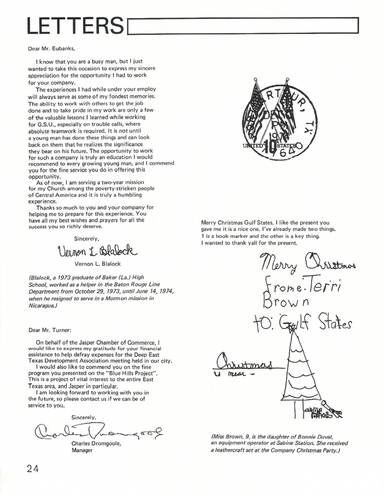 LETTERS
Dear Mr. Eubanks,
I know that you are a busy man, but I just
wanted to take this occasion to express my sincere
appreciation for the opportunity I had to work
for your company.
The experiences I had while under your employ
will always serve as some of my fondest memories.
The ability to work with others to get the job
done and to take pride in my work are only a few
of the valuable lessons I learned while working
for G.S.U., especially on trouble calls, where
absolute teamwork is required. It is not until
a young man has done these things and can look
back on them that he realizes the significance
they bear on his future. The opportunity to work
for such a company is truly an education I would
recommend to every growing young man, and I commend
you for the fine service you do in offering this
opportunity.
As of now, I am serving a two-year mission
for my Church among the poverty stricken people
of Central America and it is truly a humbling
experience.
Thanks so much to you and your company for
helping me to prepare for this experience. You
have all my best wishes and prayers for all the
success you so richly deserve.
Sincerely,
Vernon L. Blalock
Vernon L. Blalock
(Blalock, a 1973 graduate of Baker (La.) High
School, worked as a helper in the Baton Rouge Line
Department from October 29, 1973, until June 14, 1974,
when he resigned to serve in a Mormon mission in
Nicaragua.)
Dear Mr. Turner:
On behalf of the Jasper Chamber of Commerce, I
would like to express my gratitude for your financial
assistance to help defray expenses for the Deep East
Texas Development Association meeting held in our city.
I would also like to commend you on the fine
program you presented on the "Blue Hills Project".
This is a project of vital interest to the entire East
Texas area, and Jasper in particular.
I am looking forward to working with you in
the future, so please contact us if we can be of
service to you.
Sincerely,
Charles Dromgoole
Charles Dromgoole,
Manager
24
PORT ARTHUR, TX
UNITED STATES 10¢
Merry Christmas Gulf States, I like the present you
gave me it is a nice one, I've already made two things.
1 is a book marker and the other is a key thing.
I wanted to thank yall for the present.
Merry Christmas
frome. Terri
Brown
to: Gulf States
Christmas
is near -
(Miss Brown, 9, is the daughter of Bonnie Duval,
an equipment operator at Sabine Station. She received
a leathercraft set at the Company Christmas Party.)